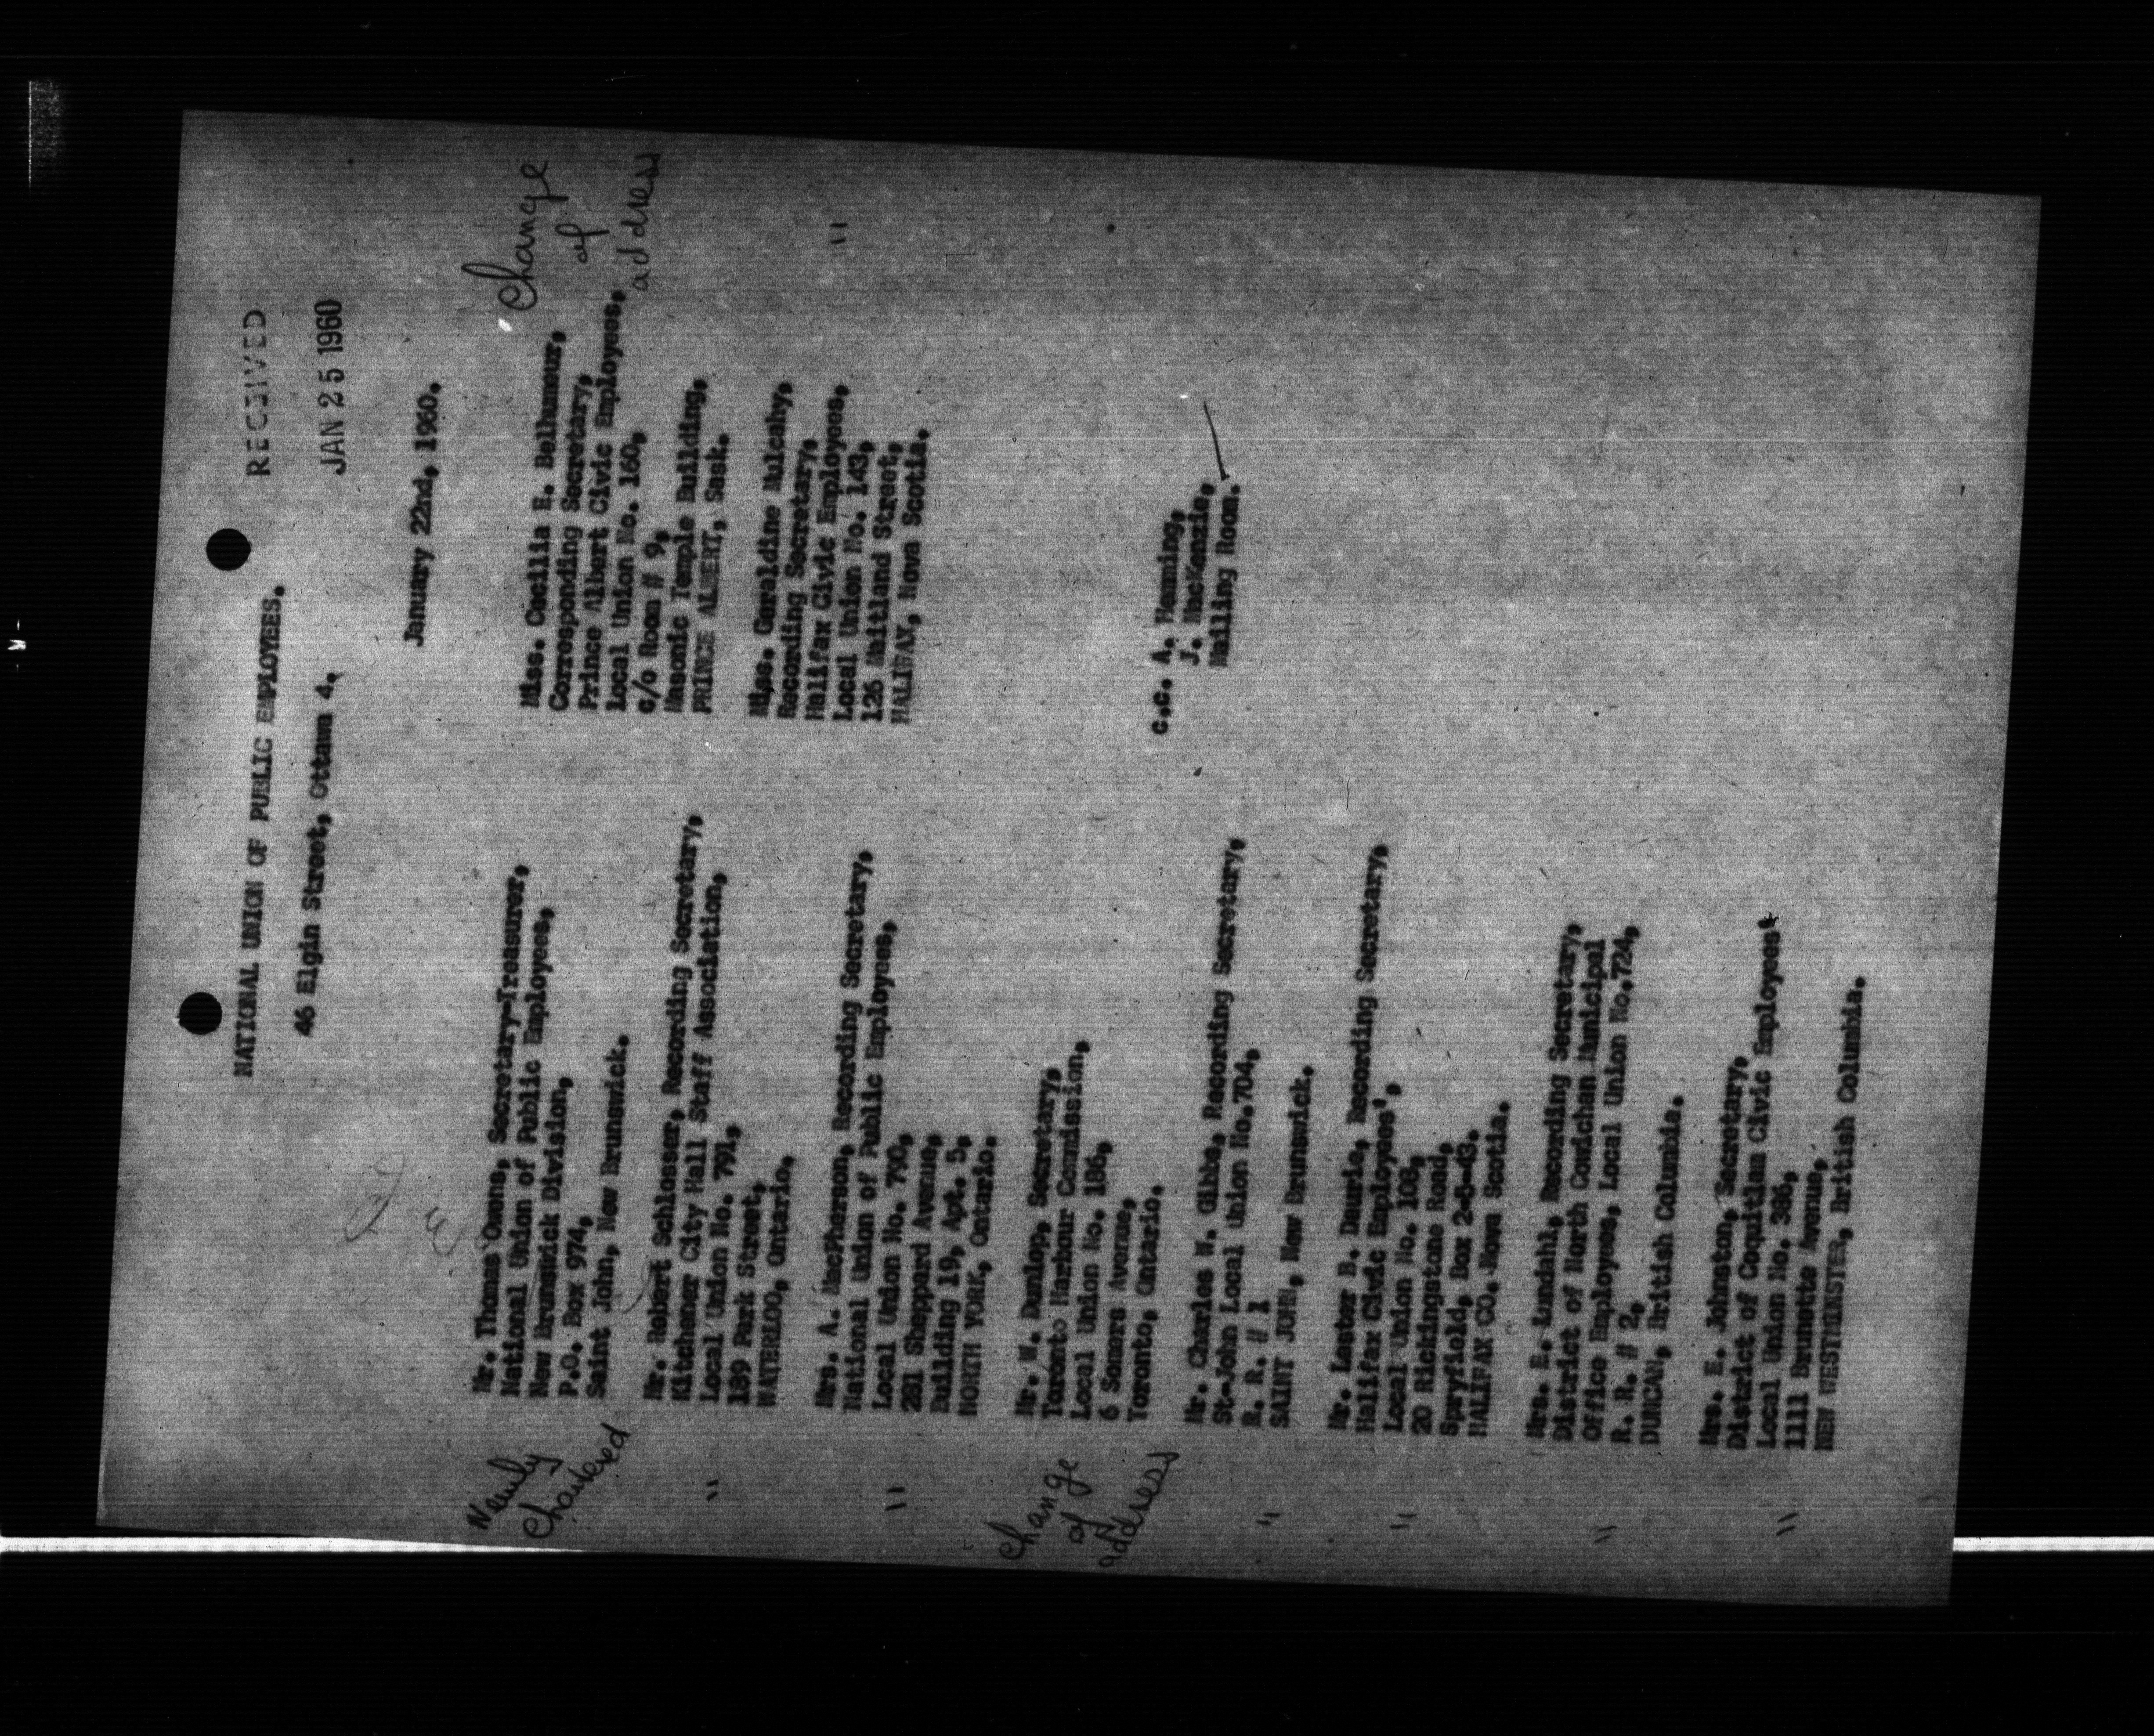 NATIONAL UNION OF PUBLIC EMPLOYEES.
RECEIVED
46 Elgin Street, Ottawa 4.
JAN 25 1960
January 22nd, 1960.
Newly
Chartered
Mr. Thomas Owens, Secretary-Treasurer,
National Union of Public Employees,
New Brunswick Division,
P.O. Box 974,
Saint John, New Brunswick.
"
Mr. Robert Schlosser, Recording Secretary,
Kitchener City Hall Staff Association,
Local Union No. 791,
189 Park Street,
WATERLOO, Ontario.
"
Mrs. A. MacPherson, Recording Secretary,
National Union of Public Employees,
Local Union No. 790,
281 Sheppard Avenue,
Building 19, Apt. 5,
NORTH YORK, Ontario.
Change
of
address
Mr. W. Dunlop, Secretary,
Toronto Harbour Commission,
Local Union No. 186,
6 Sonore Avenue,
Toronto, Ontario.
"
Mr. Charles W. Gibbs, Recording Secretary,
St-John Local Union No.704,
R. R. # 1
SAINT JOHN, New Brunswick.
"
Mr. Lester B. Daurie, Recording Secretary,
Halifax Civic Employees',
Local Union No. 108,
20 Rickingstone Road,
Spryfield, Box 2-5-43.
HALIFAX CO. Nova Scotia.
"
Mrs. E. Lundahl, Recording Secretary,
District of North Cowichan Municipal
Office Employees, Local Union No.724,
R. R. # 2,
DUNCAN, British Columbia.
"
Mrs. E. Johnston, Secretary,
District of Coquitlam Civic Employees'
Local Union No. 386,
1111 Brunette Avenue,
NEW WESTMINSTER, British Columbia.
Change
of
address
Miss. Cecilia E. Belhumeur,
Corresponding Secretary,
Prince Albert Civic Employees,
Local Union No. 160,
c/o Room # 9,
Masonic Temple Building,
PRINCE ALBERT, Sask.
"
Miss. Geraldine Mulcahy,
Recording Secretary,
Halifax Civic Employees,
Local Union No. 143,
126 Maitland Street,
HALIFAX, Nova Scotia.
c.c. A. Hemming,
J. MacKenzie,
Mailing Room.